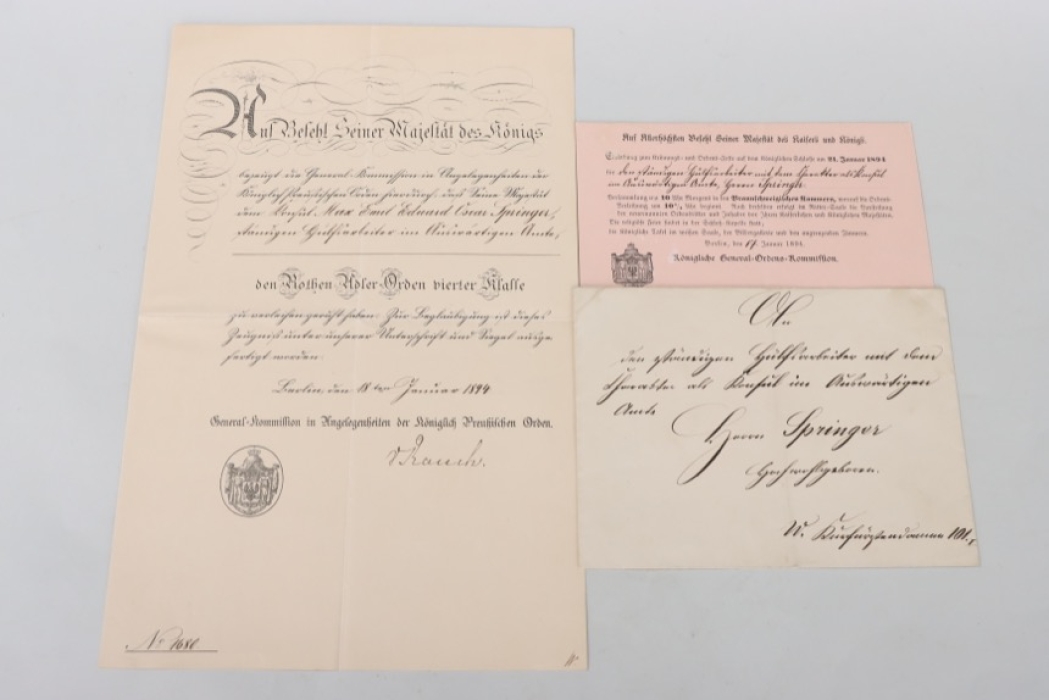 Auf Befehl Seiner Majestät des Königs
bezeugt die General-Kommission in Angelegenheiten der
Königlich Preußischen Orden hierdurch, daß Seine Majestät
dem Konsul Max Paul Eduard Oscar Springer,
ständigen Hülfsarbeiter im Auswärtigen Amte,
den Rothen Adler-Orden vierter Klasse
zu verleihen geruht haben. Zur Beglaubigung ist dieses
Zeugniß unter unserer Unterschrift und Siegel ausge-
fertigt worden.
Berlin, den 18ten Januar 1894
General-Kommission in Angelegenheiten der Königlich Preußischen Orden.
v Rauch.
No
Auf Allerhöchsten Befehl Seiner Majestät des Kaisers und Königs.
Einladung zum Krönungs- und Ordens-Feste auf dem Königlichen Schlosse am 21. Januar 1894
den ständigen Hülfsarbeiter mit dem Charakter als Konsul
im Auswärtigen Amte, Herrn Springer.
Versammlung um 10 Uhr Morgens in den Braunschweigischen Kammern, worauf die Ordens-
Verleihung um 10½ Uhr beginnt. Nach derselben erfolgt im Ritter-Saale die Vorstellung
der neuernannten Ordensritter und Inhaber bei Ihren Kaiserlichen und Königlichen Majestäten.
Die religiöse Feier findet in der Schloß-Kapelle statt,
die Königliche Tafel im weißen Saale, der Bildergalerie und den angrenzenden Zimmern.
Berlin, den 17 Januar 1894.
Königliche General-Ordens-Kommission.
An
den ständigen Hülfsarbeiter mit dem
Charakter als Konsul im Auswärtigen
Amte
Herrn Springer
Hochwohlgeboren.
W. Kurfürstendamm 101.